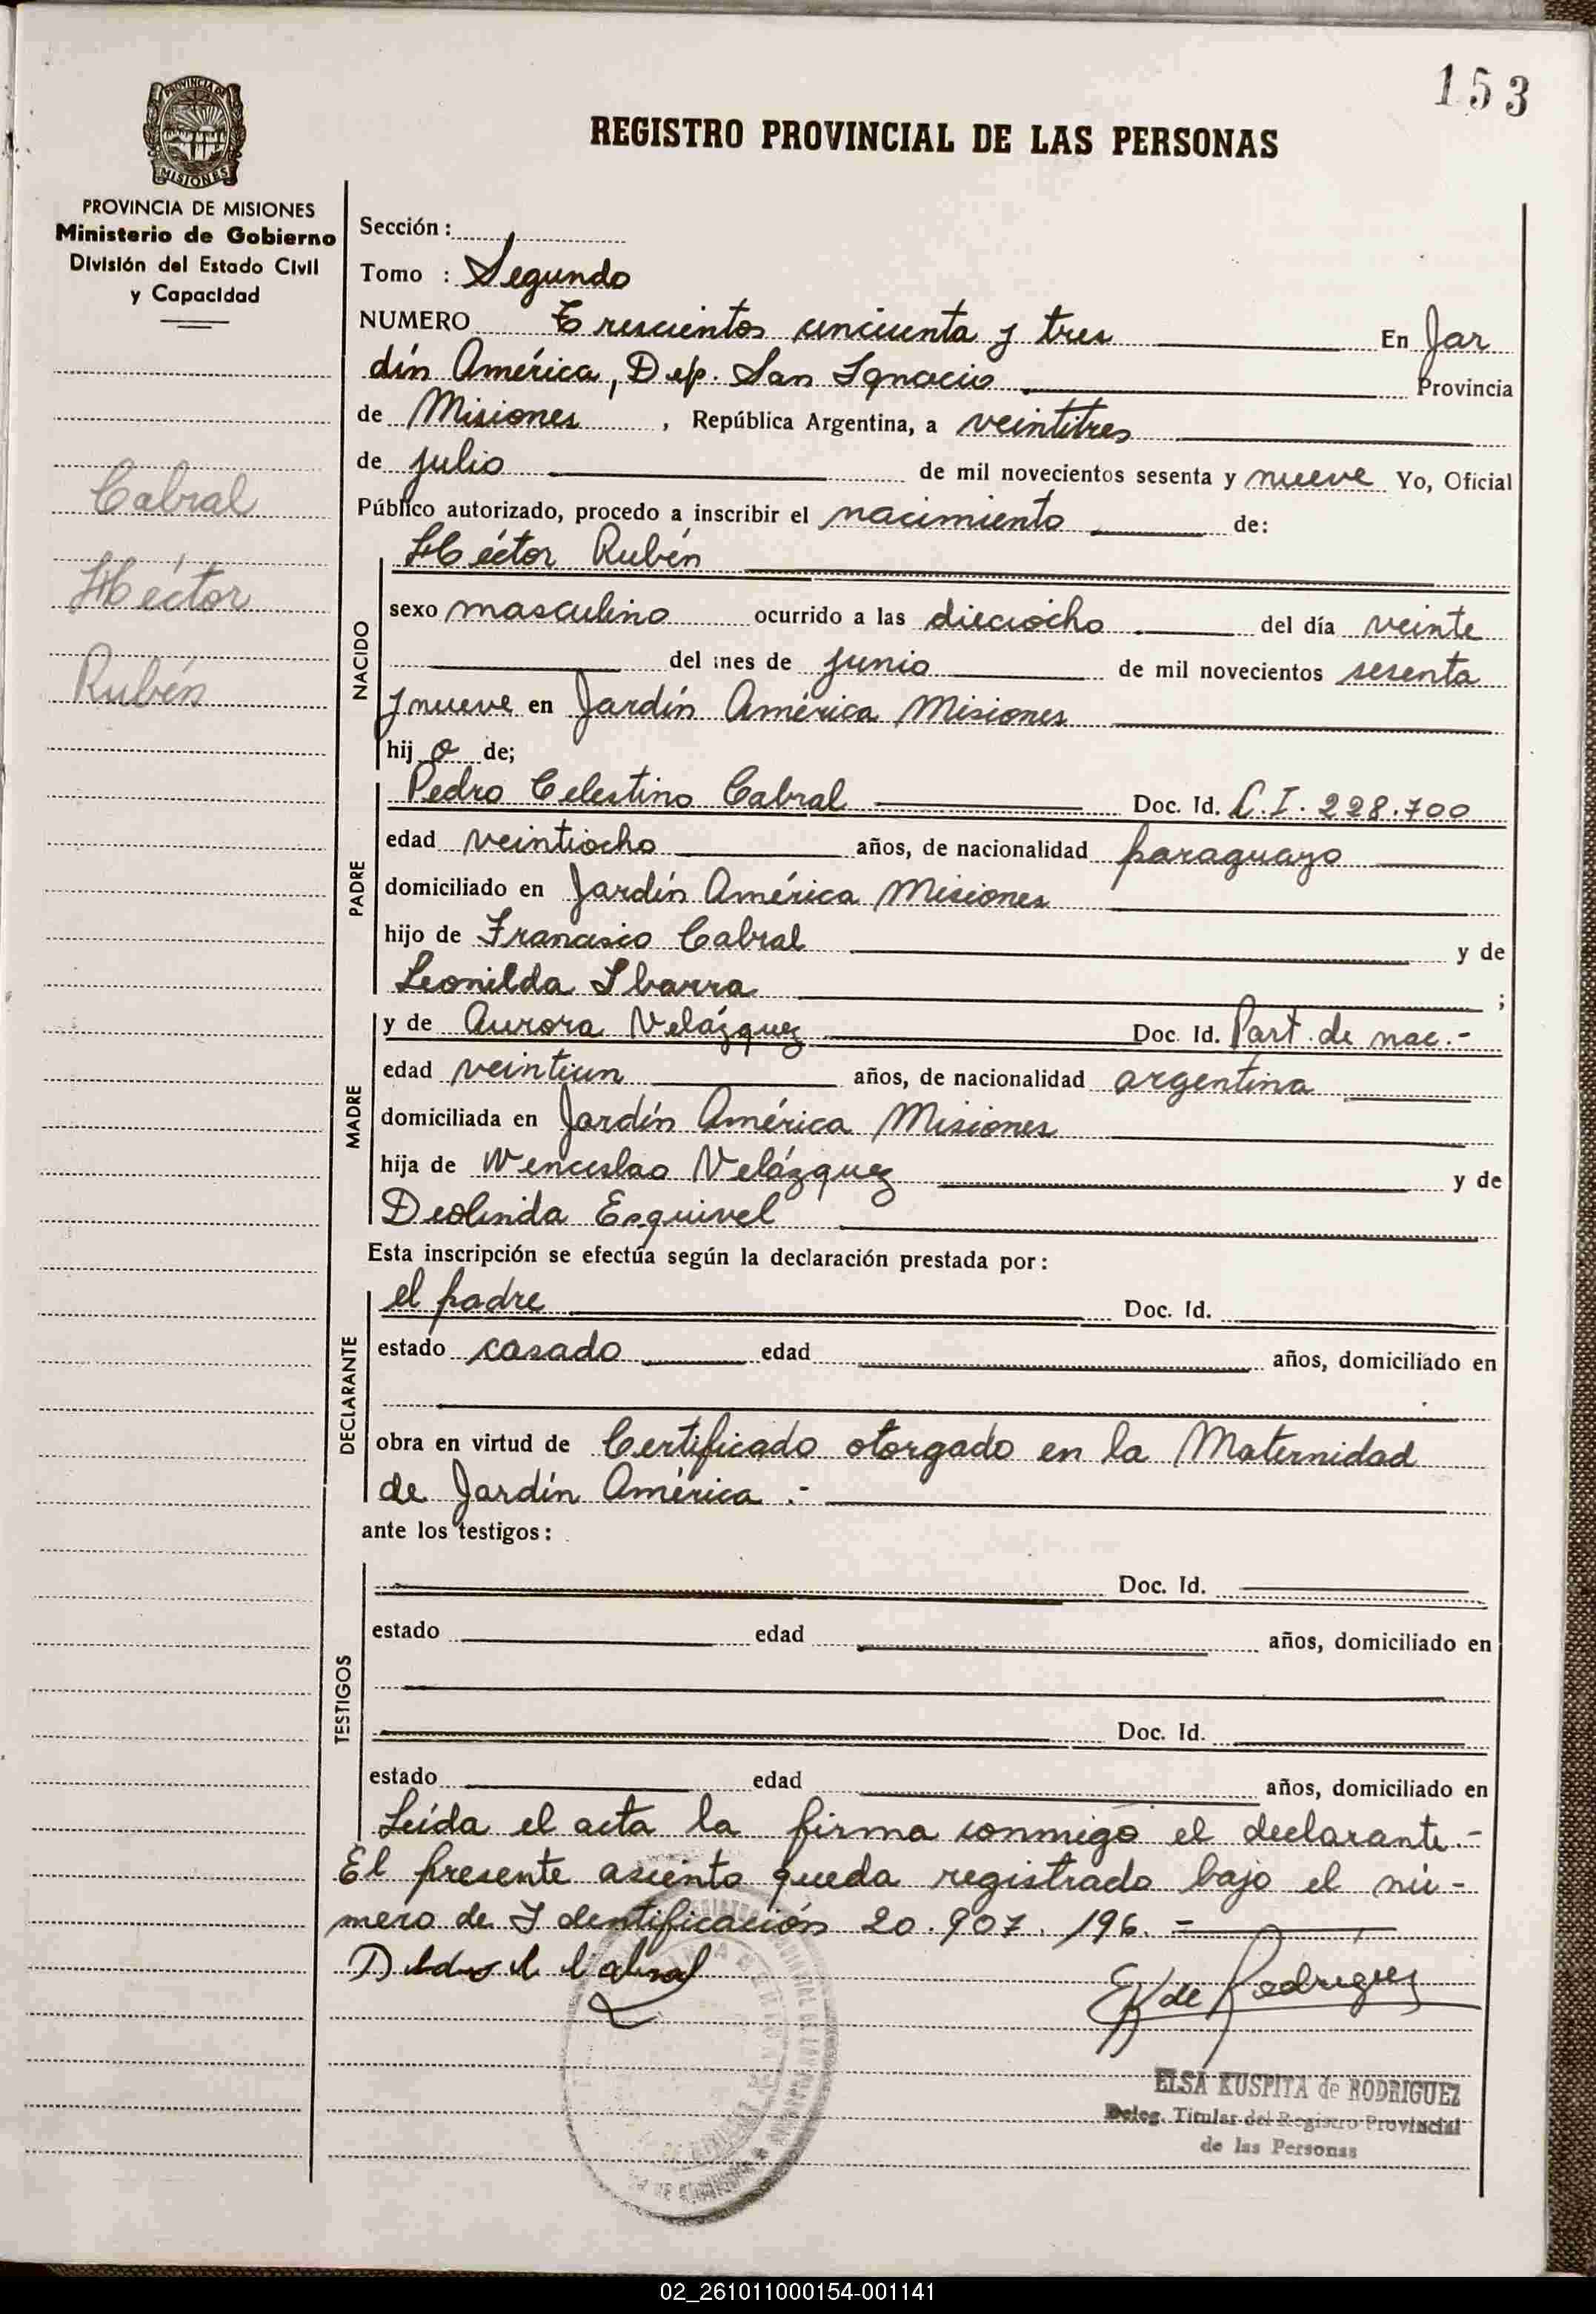 153
PROVINCIA DE
MISIONES
REGISTRO PROVINCIAL DE LAS PERSONAS
PROVINCIA DE MISIONES
Ministerio de Gobierno
División del Estado Civil
y Capacidad
Cabral
Héctor
Rubén
Sección:
Tomo : Segundo
NUMERO Trescientos cincuenta y tres En Jar
dín América, Dep. San Ignacio Provincia
de Misiones, República Argentina, a veintitres
de julio de mil novecientos sesenta y nueve Yo, Oficial
Público autorizado, procedo a inscribir el nacimiento de:
Héctor Rubén
NACIDO
sexo masculino ocurrido a las dieciocho del día veinte
del mes de junio de mil novecientos sesenta
y nueve en Jardín América Misiones
hijo de;
PADRE
Pedro Celestino Cabral Doc. Id. C.I. 228.700
edad veintiocho años, de nacionalidad paraguayo
domiciliado en Jardín América Misiones
hijo de Francisco Cabral y de
Leonilda Ibarra ;
MADRE
y de Aurora Velázquez Doc. Id. Part. de nac.-
edad veintiun años, de nacionalidad argentina
domiciliada en Jardín América Misiones
hija de Wenceslao Velázquez y de
Deolinda Esquivel
Esta inscripción se efectúa según la declaración prestada por:
DECLARANTE
el padre Doc. Id.
estado casado edad años, domiciliado en
obra en virtud de Certificado otorgado en la Maternidad
de Jardín América .-
ante los testigos:
TESTIGOS
Doc. Id.
estado edad años, domiciliado en
Doc. Id.
estado edad años, domiciliado en
Leída el acta la firma conmigo el declarante.-
El presente asiento queda registrado bajo el nú-
mero de Identificación 20.907.196.=
Cabral
EK de Rodríguez
ELSA KUSPITA de RODRIGUEZ
Deleg. Titular del Registro Provincial
de las Personas
02_261011000154-001141